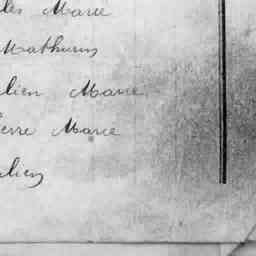 les Marie
Mathurin
lien Marie
ierre Marie
ulien